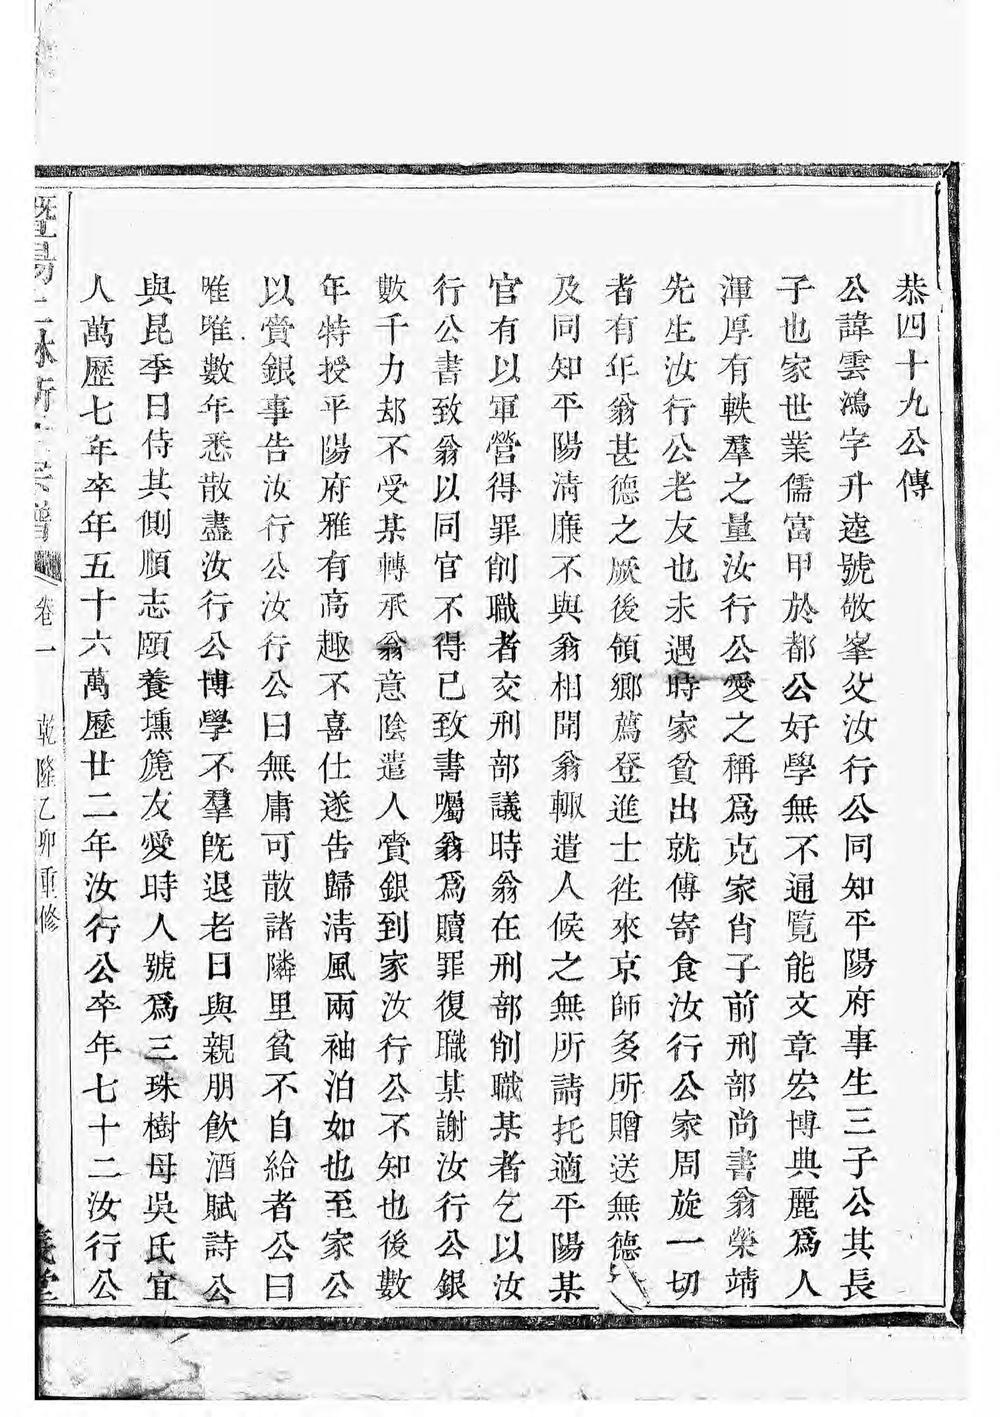 恭四十九公傳
公諱雲鴻字升逵號敬峯父汝行公同知平陽府事生三子公其長
子也家世業儒富甲於都公好學無不通覽能文章宏博典麗爲人
渾厚有軼羣之量汝行公愛之稱爲克家肖子前刑部尚書翁榮靖
先生汝行公老友也未遇時家貧出就傅寄食汝行公家周旋一切
者有年翁甚德之厥後領鄉薦登進士徃來京師多所贈送無德
及同知平陽淸廉不與翁相聞翁輙遣人候之無所請托適平陽某
官有以軍營得罪削職者交刑部議時翁在刑部削職某者乞以汝
行公書致翁以同官不得已致書囑翁爲贖罪復職某謝汝行公銀
數千力却不受某轉承翁意陰遣人賫銀到家汝行公不知也後數
年特授平陽府雅有高趣不喜仕遂告歸淸風兩袖泊如也至家公
以賫銀事告汝行公汝行公曰無庸可散諸隣里貧不自給者公曰
唯唯數年悉散盡汝行公博學不羣旣退老日與親朋飮酒賦詩公
與昆季日侍其側順志頤養壎篪友愛時人號爲三珠樹母吳氏宜
人萬歷七年卒年五十六萬歷廿二年汝行公卒年七十二汝行公
暨陽 宗譜 卷一 乾隆乙卯重修 義堂